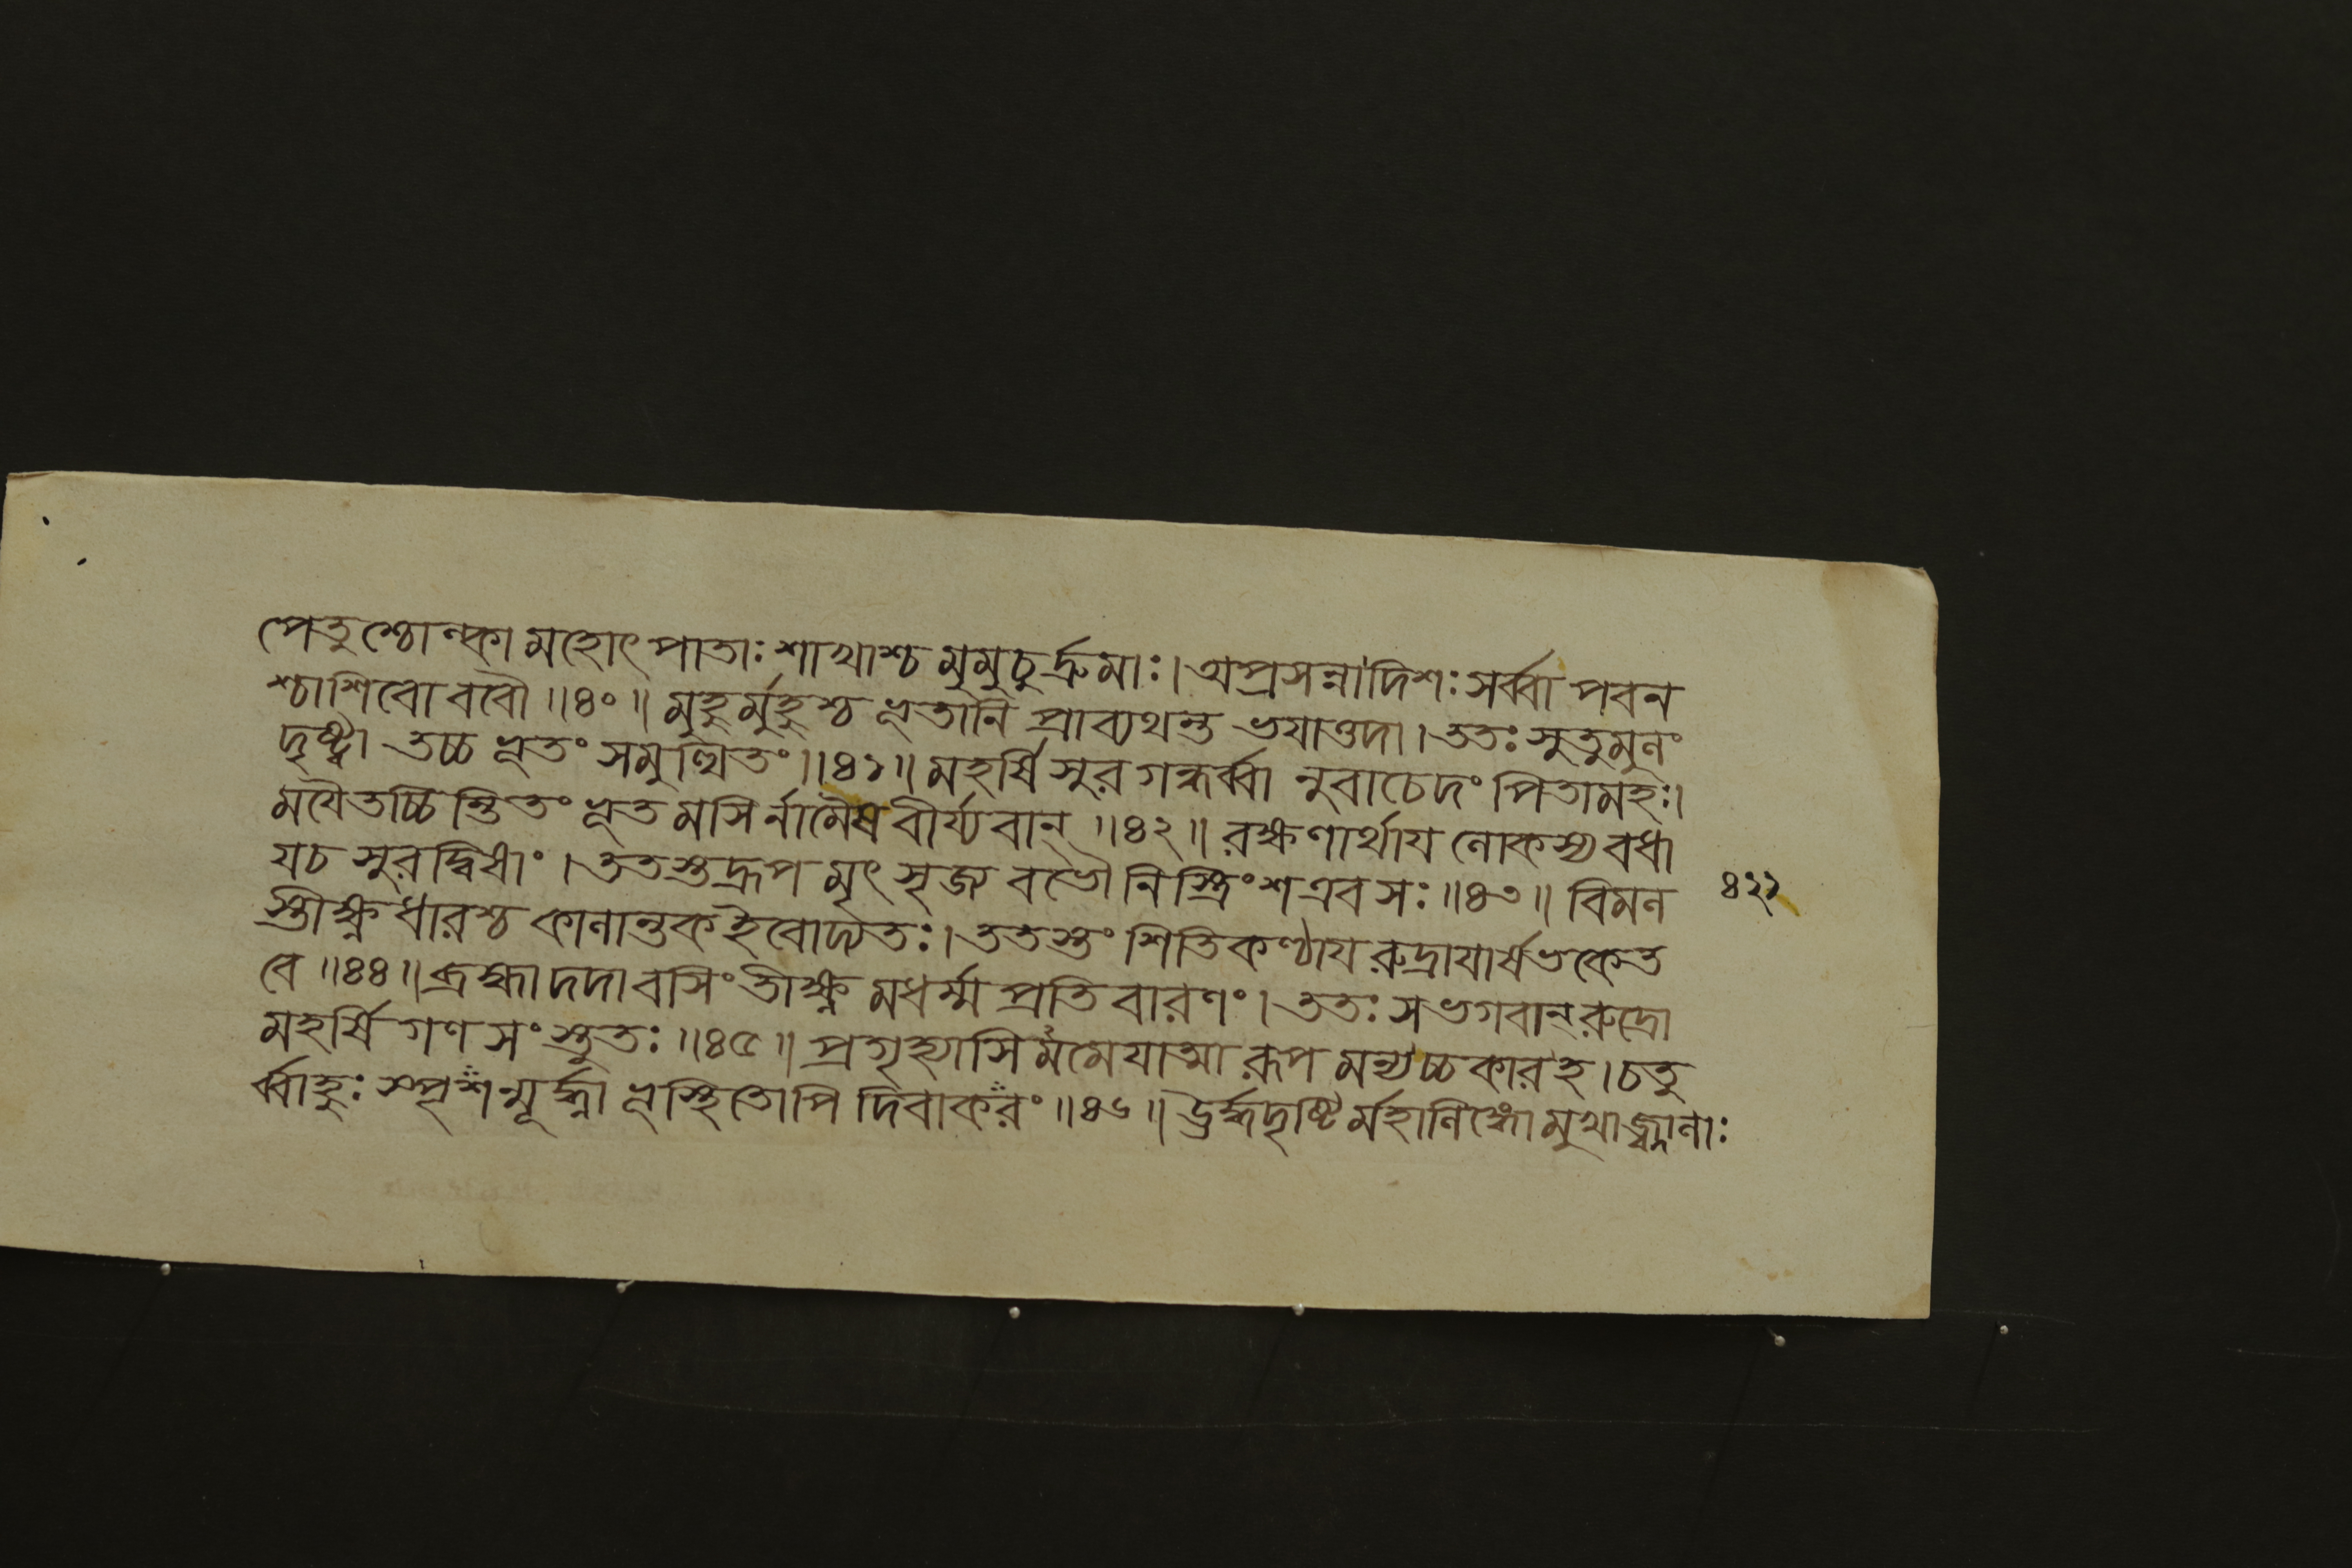 পেতুশ্চোল্কা মহোৎপাতাঃ শাখাশ্চ মুমুচুর্দ্রুমাঃ। অপ্রসন্না দিশঃ সর্ব্বা পবন
শ্চাশিবো ববৌ ॥৪০॥ মুহুর্ম্মুহুশ্চ ভূতানি প্রাব্যথন্ত ভয়াত্তদা। ততঃ সুতুমুলং
দৃষ্ট্বা তচ্চ ভূতং সমুত্থিতং॥৪১॥ মহর্ষি সুর গন্ধর্ব্বা নুবাচেদং পিতামহঃ।
ময়ৈতচ্চিন্তিতং ভূতমসির্নামৈষ বীর্য্যবান্ ॥৪২॥ রক্ষণার্থায় লোকস্য বধা
য়চ সুরদ্বিষাং। ততস্তদ্রূপ মুৎসৃজ্য বভৌ নিস্ত্রিংশ এব সঃ ॥৪৩॥ বিমল
স্তীক্ষ্ণধারশ্চ কালান্তক ইবোদ্যতঃ। ততস্তং শিতিকণ্ঠায় রুদ্রায়ার্ষভকেত
বে ॥৪৪॥ ব্রহ্মা দদাবসিং তীক্ষ্ণ মধর্ম্ম প্রতিবারণং। ততঃ স ভগবান্ রুদ্রো
মহর্ষি গণ সংস্তুতঃ ॥৪৫॥ প্রগৃহ্যাসিমমেয়াত্মা রূপ মন্যচ্চকার হ। চতু
র্ব্বাহুঃ স্পৃশন্মূর্দ্ধ্না ভূস্থিতোপি দিবাকরং ॥৪৬॥ ঊর্দ্ধদৃষ্টির্মহালিঙ্গো মুখাজ্জ্বালাঃ
৪২২